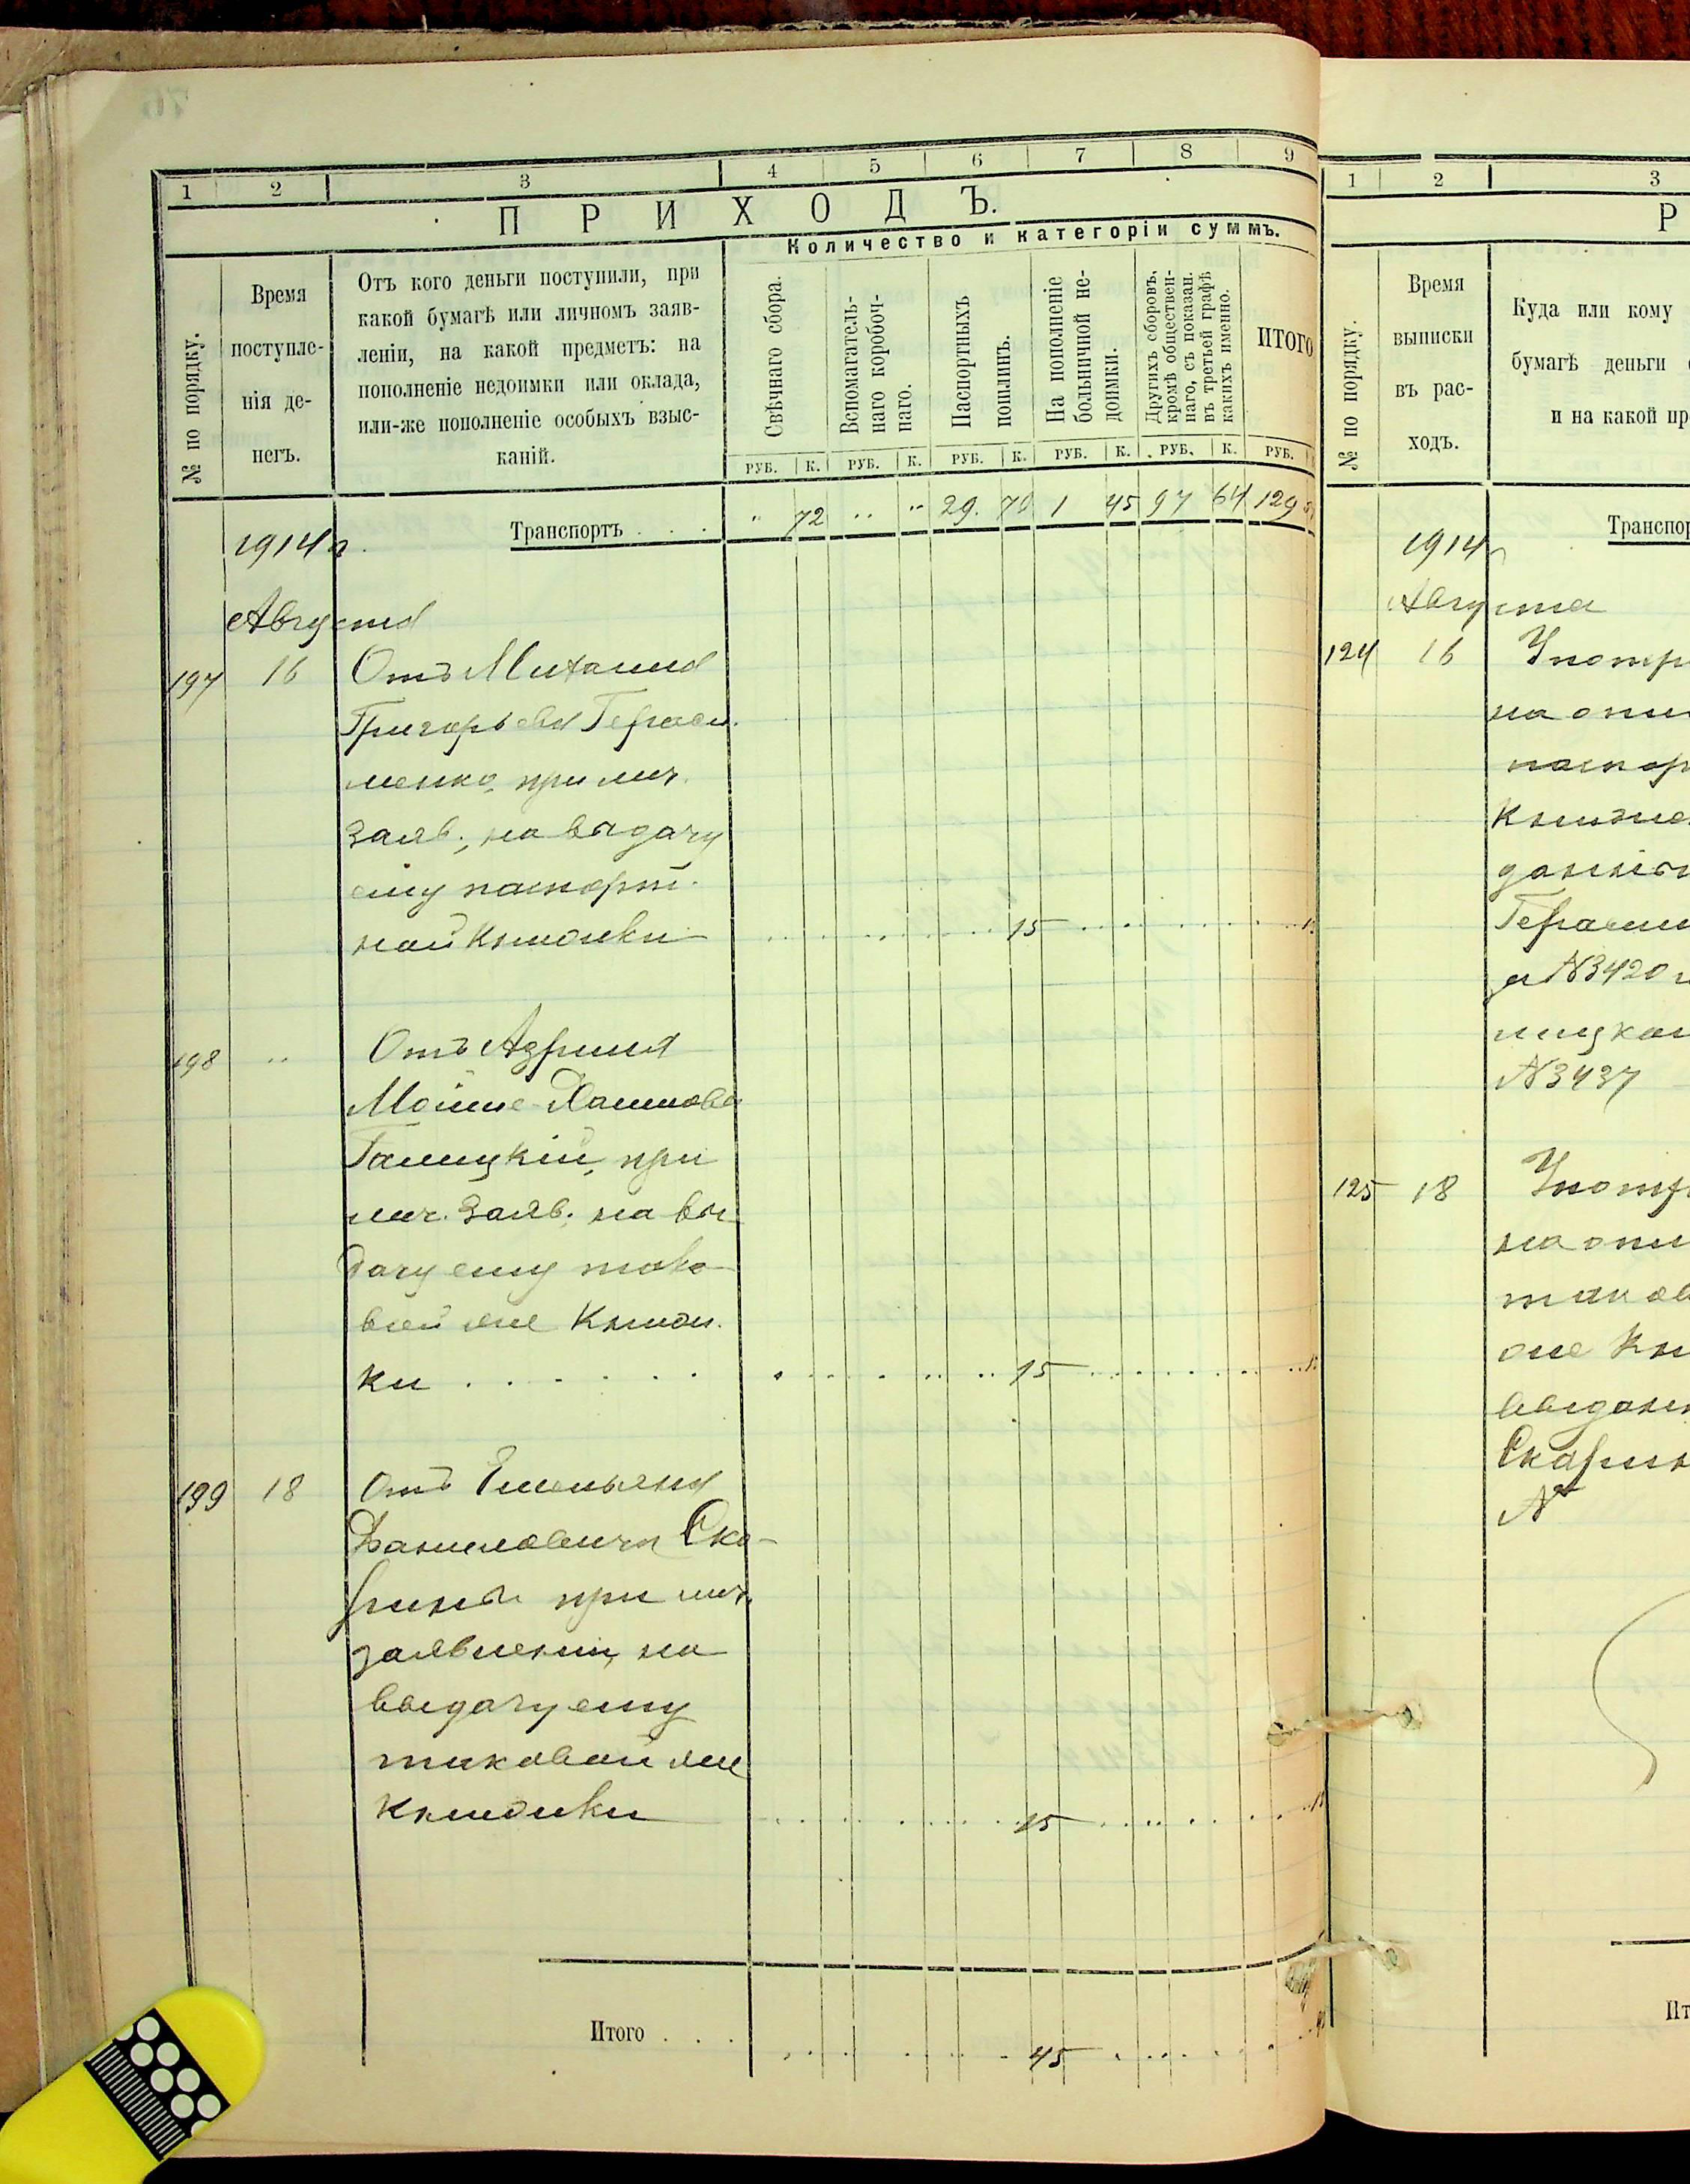 1 2 3 4 5 6 7 8 9
ПРИХОДЪ.
Количество и категоріи суммъ.
№ по порядку.
Время
поступле-
нія де-
негъ.
Отъ кого деньги поступили, при
какой бумагѣ или личномъ заяв-
леніи, на какой предметъ: на
пополненіе недоимки или оклада,
или-же пополненіе особыхъ взыс-
каній.
Свѣчнаго сбора.
Вспомагатель-
наго коробоч-
наго.
Паспортныхъ
пошлинъ.
На пополненіе
больничной не-
доимки.
Другихъ сборовъ,
кромѣ обществен-
наго, съ показан.
въ третьей графѣ
какихъ именно.
ИТОГО
РУБ. К. РУБ. К. РУБ. К. РУБ. К. РУБ. К. РУБ.
Транспортъ . . . " 72 " " 29. 70 1 45 97 64 129
1914 г.
Августа
197 16 Отъ Михаила
Григорьева Гераси-
менко, при лич.
заяв., на выдачу
ему паспорт-
ной книжки 15
198 " Отъ
Мойше
Галицкій, при
лич. заяв. на вы-
дачу ему тако-
вой же книж-
ки . . . . . . 15
199 18 Отъ Емельяна
Даниловича Ска-
рины при лич.
заявленіи, на
выдачу ему
таковой же
книжки 15
Итого . . . 45
1 2 3
Р
№ по порядку.
Время
выписки
въ рас-
ходъ.
Куда или кому
бумагѣ деньги
и на какой пр
Транспор
1914 г
Августа
124 16 Употр
на опл
паспор
книже
данны
Герасим
за №3420 и
лицком
№3437
125 18 Употр
на опл
таков
же кн
выдан
Скарин
№
Ит